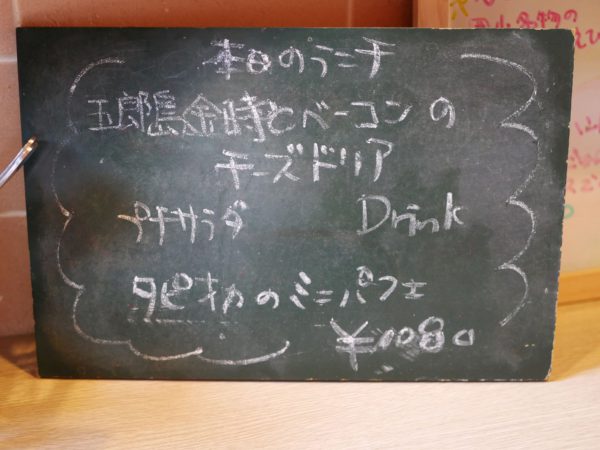 本日のランチ
五郎島金時とベーコンの
チーズドリア
プチサラダ Drink
タピオカのミニパフェ
¥1080